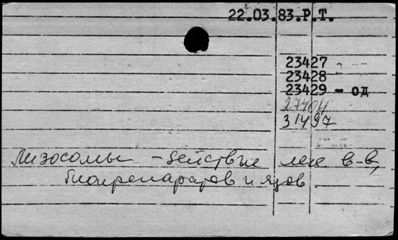 22.03.83.Р.Т.
23427 -
23428 -
23429 - од
27404
31497
Лизосомы - действие лек в-в,
биопрепаратов и ядов